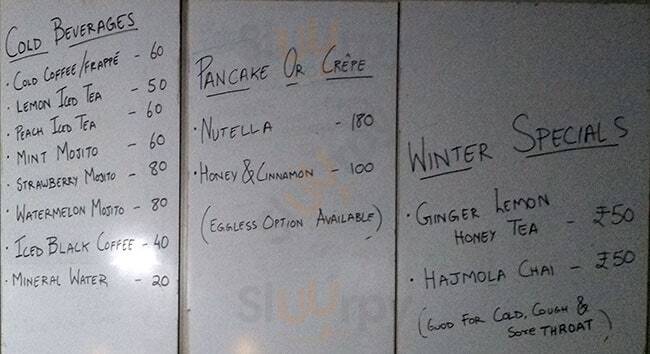 COLD BEVERAGES
· COLD COFFEE/FRAPPÉ - 60
· LEMON ICED TEA - 50
· PEACH ICED TEA - 60
· MINT MOJITO - 60
· STRAWBERRY MOJITO - 80
· WATERMELON MOJITO - 80
· ICED BLACK COFFEE - 40
· MINERAL WATER - 20
PANCAKE OR CRÊPE
· NUTELLA - 180
· HONEY & CINNAMON - 100
(EGGLESS OPTION AVAILABLE)
WINTER SPECIALS
· GINGER LEMON
HONEY TEA - ₹50
· HAJMOLA CHAI - ₹50
(GOOD FOR COLD, COUGH &
SORE THROAT)
Sluurpy